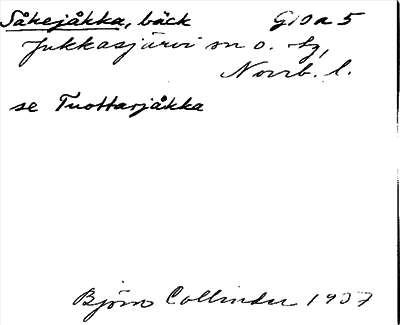 Såkejåkka, bäck G10a5
Jukkasjärvi sn o. tg,
Norrb. l.
se Tuottarjåkka
Björn Collinder 1937